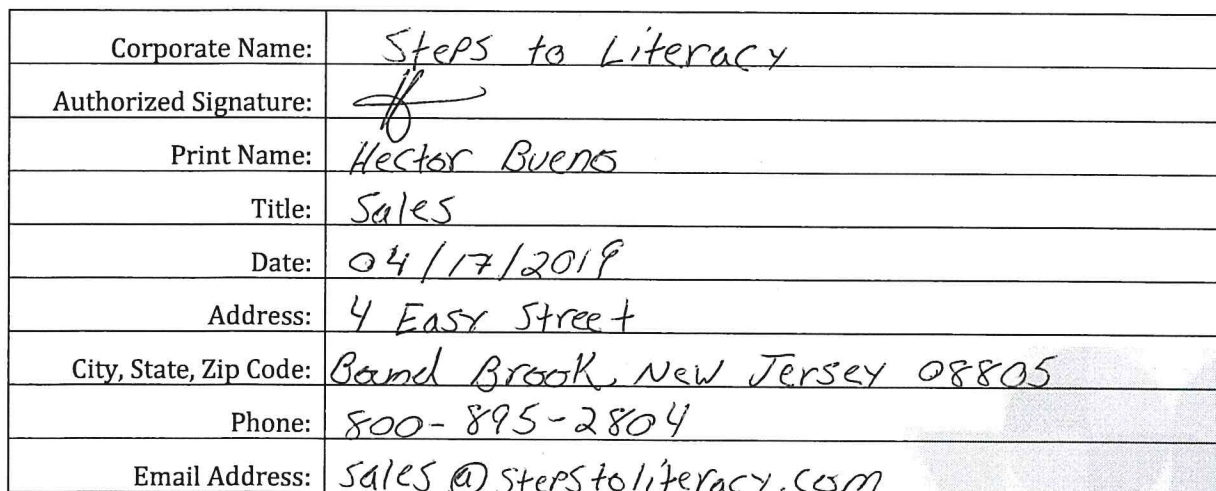 Corporate Name: Steps to Literacy
Authorized Signature:
Print Name: Hector Bueno
Title: Sales
Date: 04/17/2019
Address: 4 Easy Street
City, State, Zip Code: Bound Brook, New Jersey 08805
Phone: 800-895-2804
Email Address: sales@stepstoliteracy.com